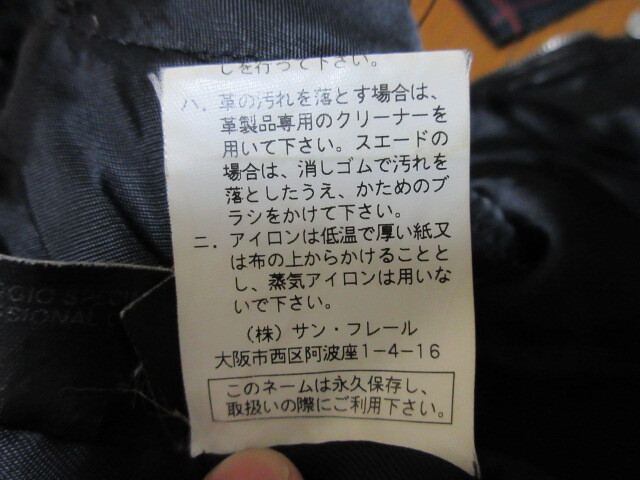 しを行って下さい。
ハ．革の汚れを落とす場合は、
革製品専用のクリーナーを
用いて下さい。スエードの
場合は、消しゴムで汚れを
落としたうえ、かためのブ
ラシをかけて下さい。
ニ．アイロンは低温で厚い紙又
は布の上からかけることと
し、蒸気アイロンは用いな
いで下さい。
（株）サン・フレール
大阪市西区阿波座1-4-16
このネームは永久保存し、
取扱いの際にご利用下さい。